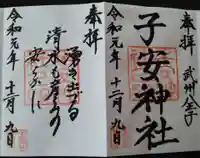 奉拝
武州八王子
子安神社
令和元年十二月九日
奉拝
湧き出づる
清水も
安らかに
令和元年十二月九日